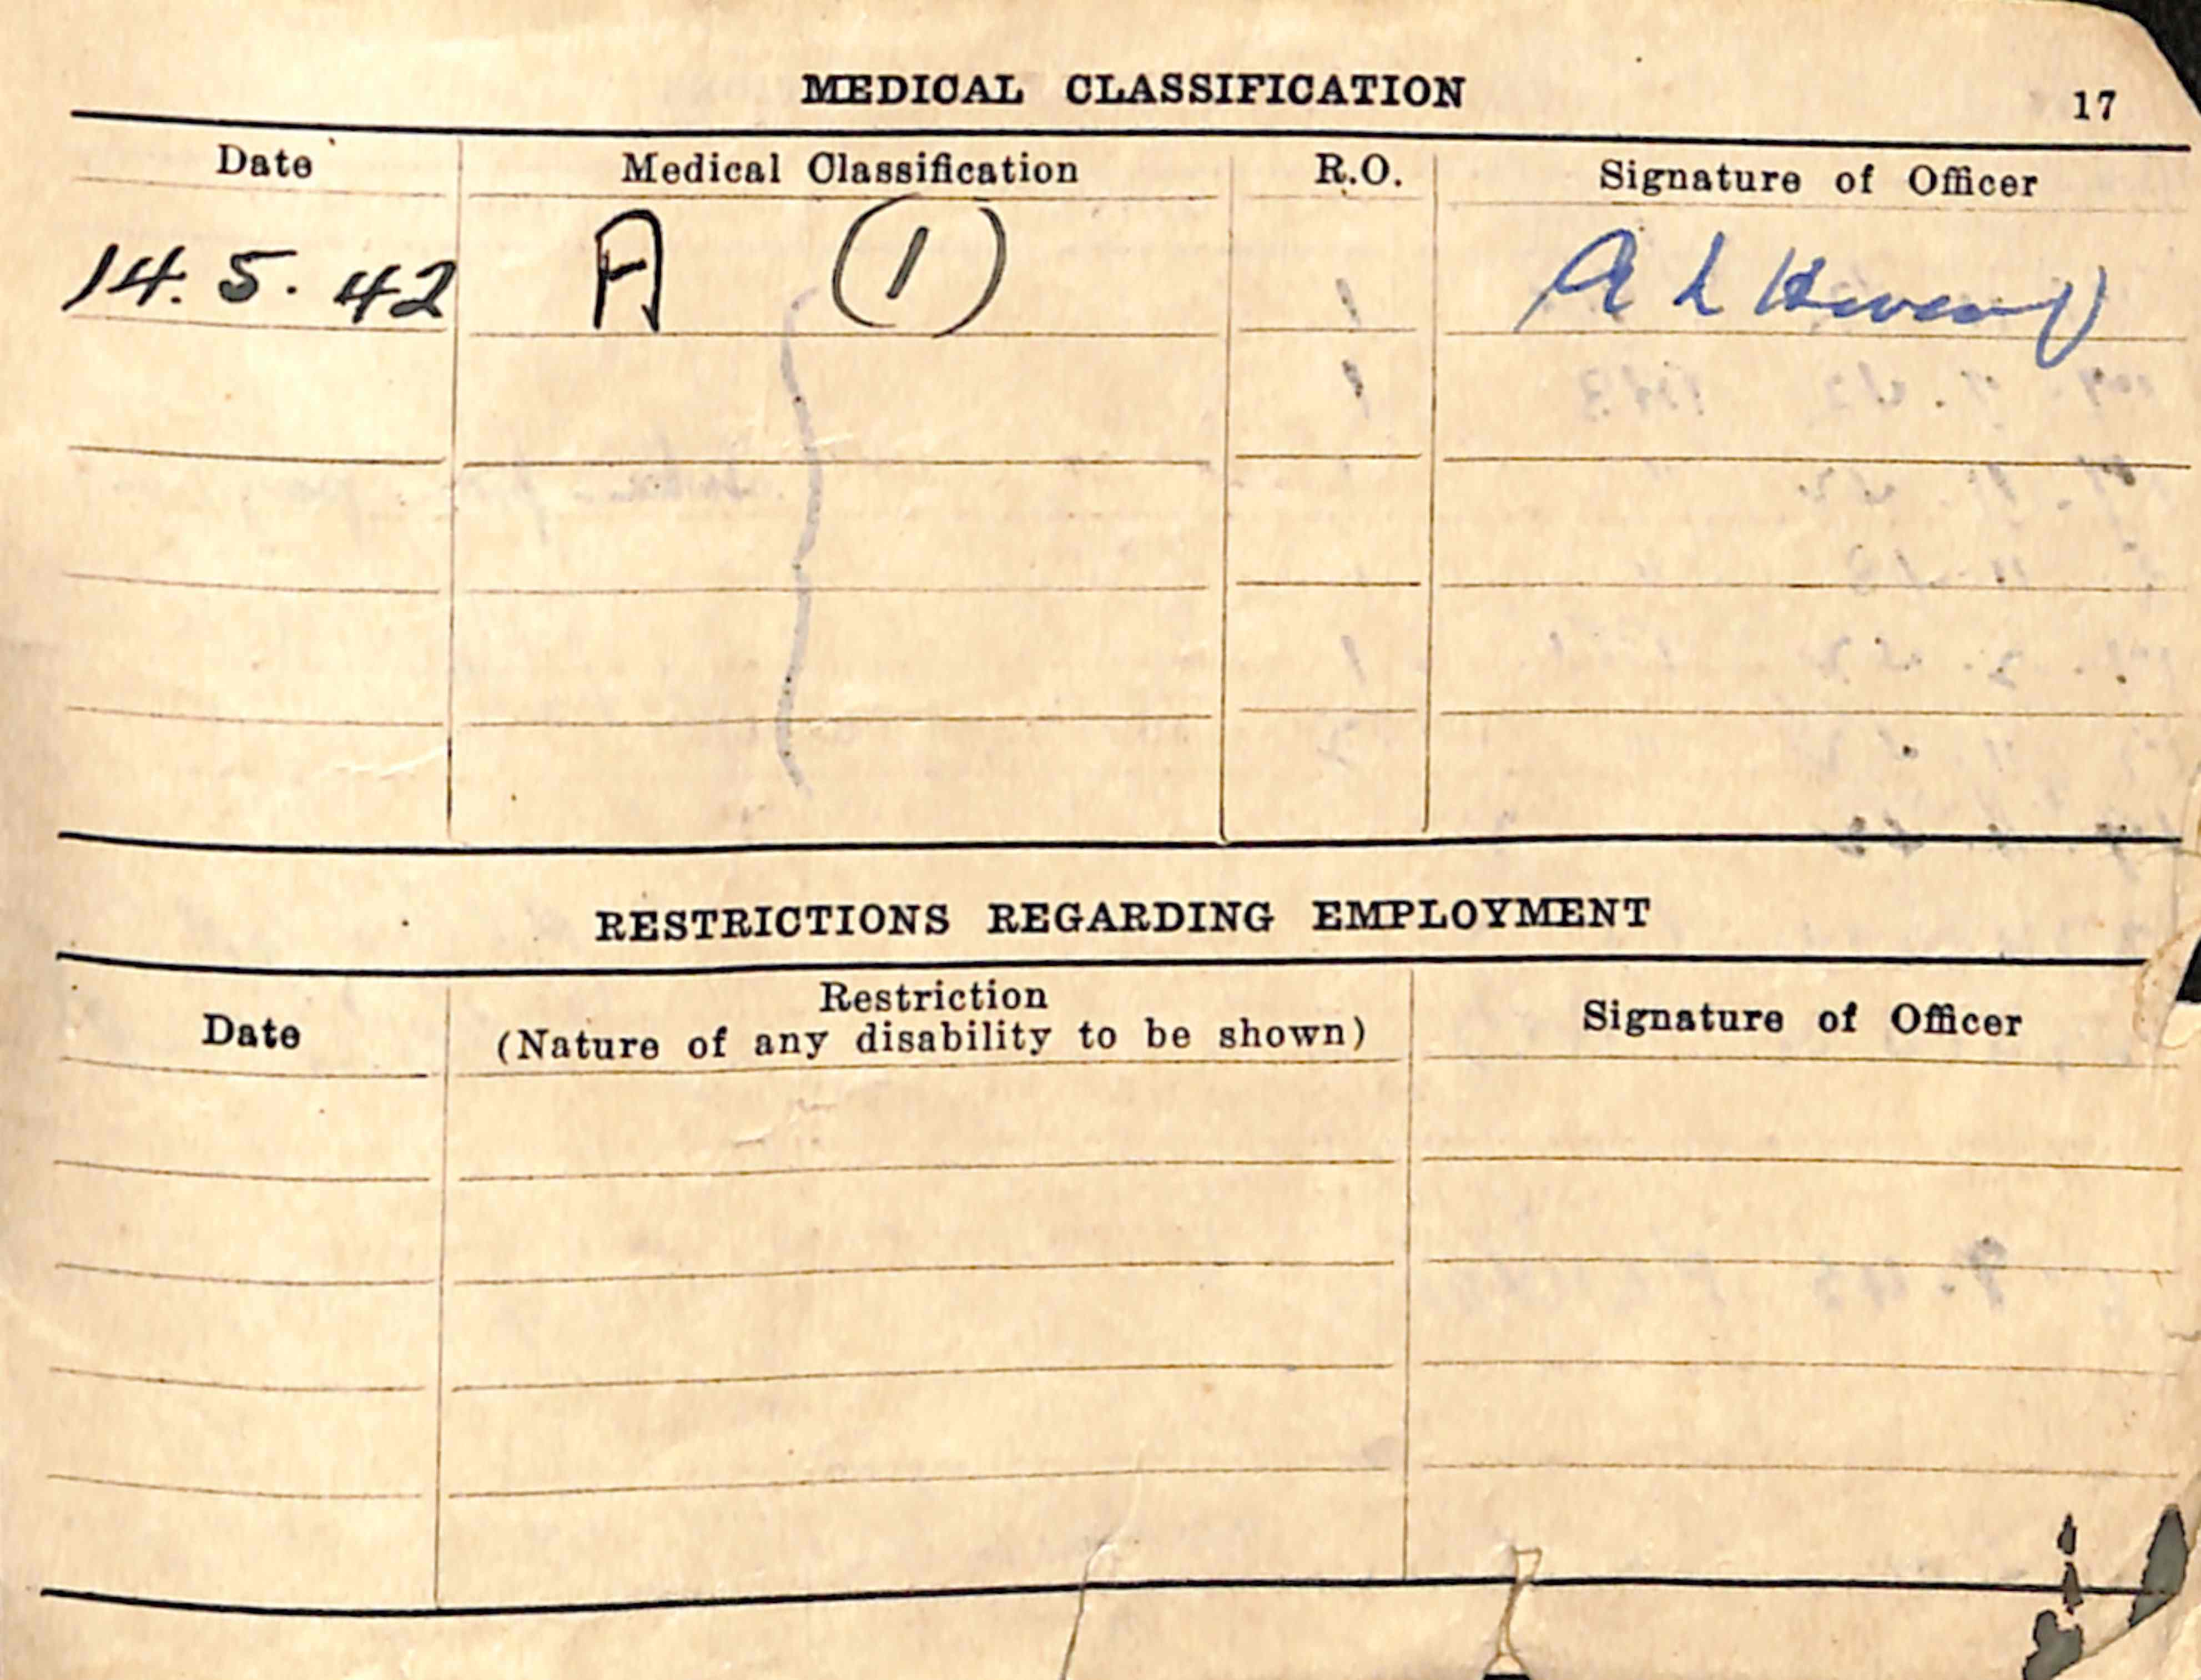 MEDICAL CLASSIFICATION
17
Date Medical Classification R.O. Signature of Officer
14. 5. 42 A (1) A L
RESTRICTIONS REGARDING EMPLOYMENT
Date Restriction (Nature of any disability to be shown) Signature of Officer